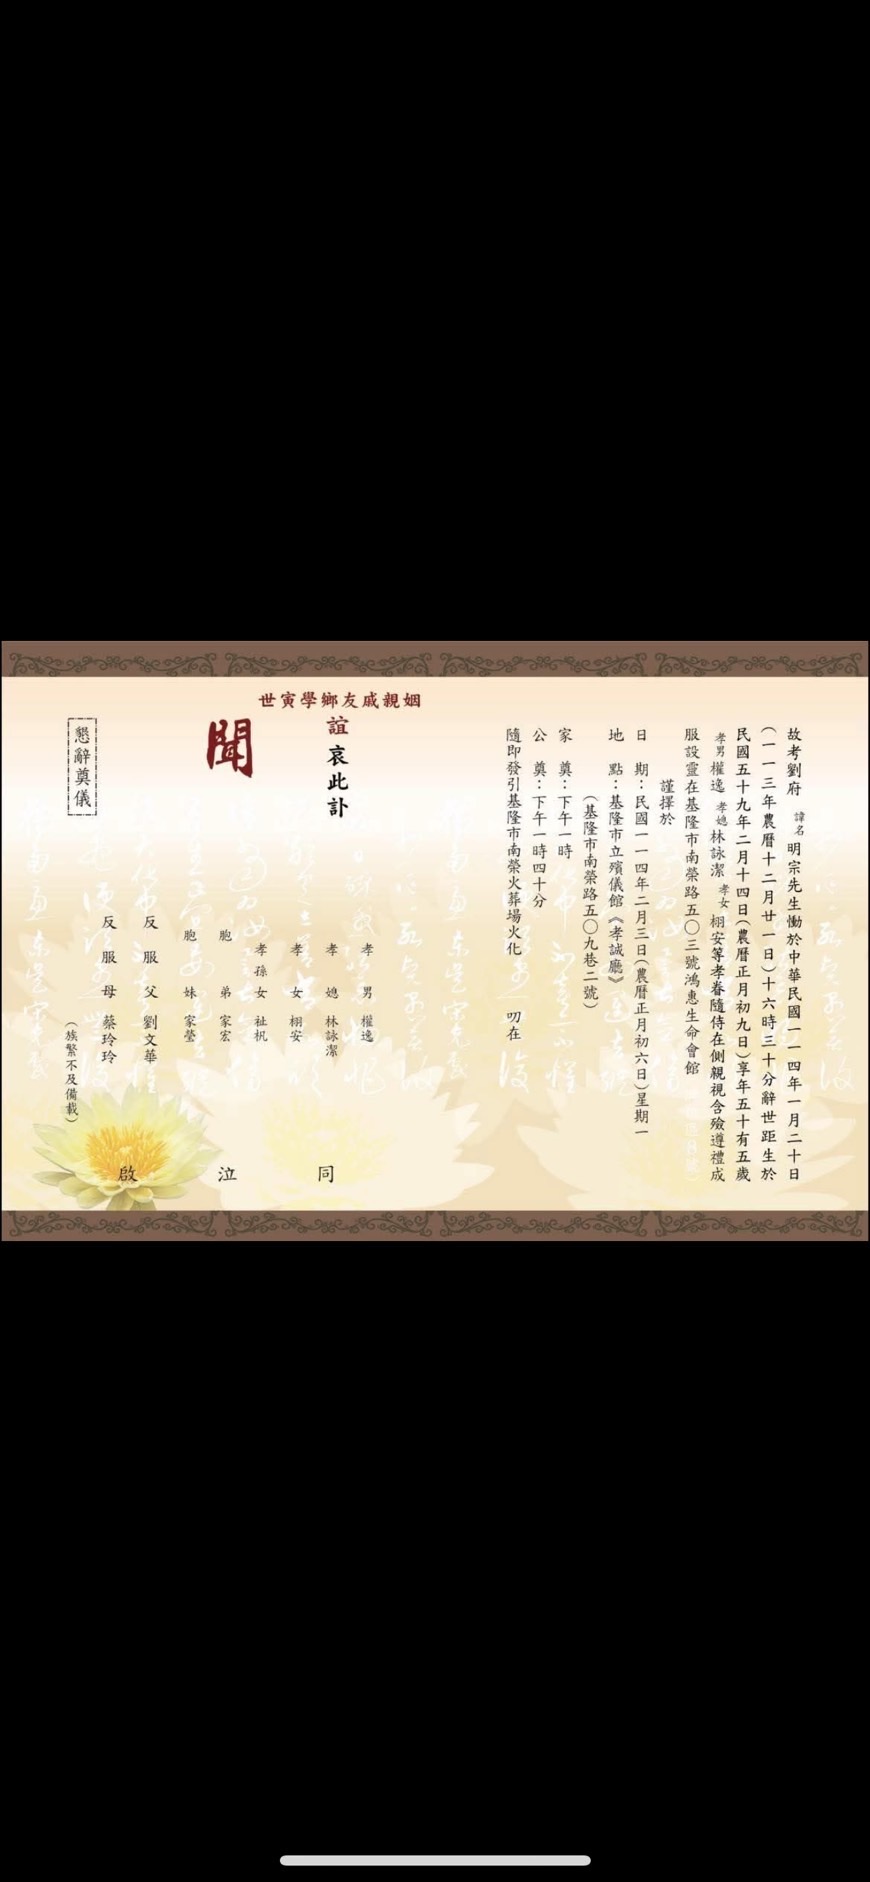 故考劉府諱名明宗先生慟於中華民國一一四年一月二十日
(一一三年農曆十二月廿一日)十六時三十分辭世距生於
民國五十九年二月十四日(農曆正月初九日)享年五十有五歲
孝男權逸孝媳林詠潔孝女栩安等孝眷隨侍在側親視含殮遵禮成
服設靈在基隆市南榮路五〇三號鴻惠生命會館
謹擇於
日期：民國一一四年二月三日(農曆正月初六日)星期一
地點：基隆市立殯儀館《孝誠廳》
(基隆市南榮路五〇九巷二號)
家奠：下午一時
公奠：下午一時四十分
隨即發引基隆市南榮火葬場火化 叨在
姻親戚友鄉學寅世
誼哀此訃
聞
孝男 權逸
孝媳 林詠潔
孝女 栩安
孝孫女 祉杋
胞弟 家宏
胞妹 家瑩
反服父 劉文華
反服母 蔡玲玲
(族繁不及備載)
同泣啟
懇辭奠儀